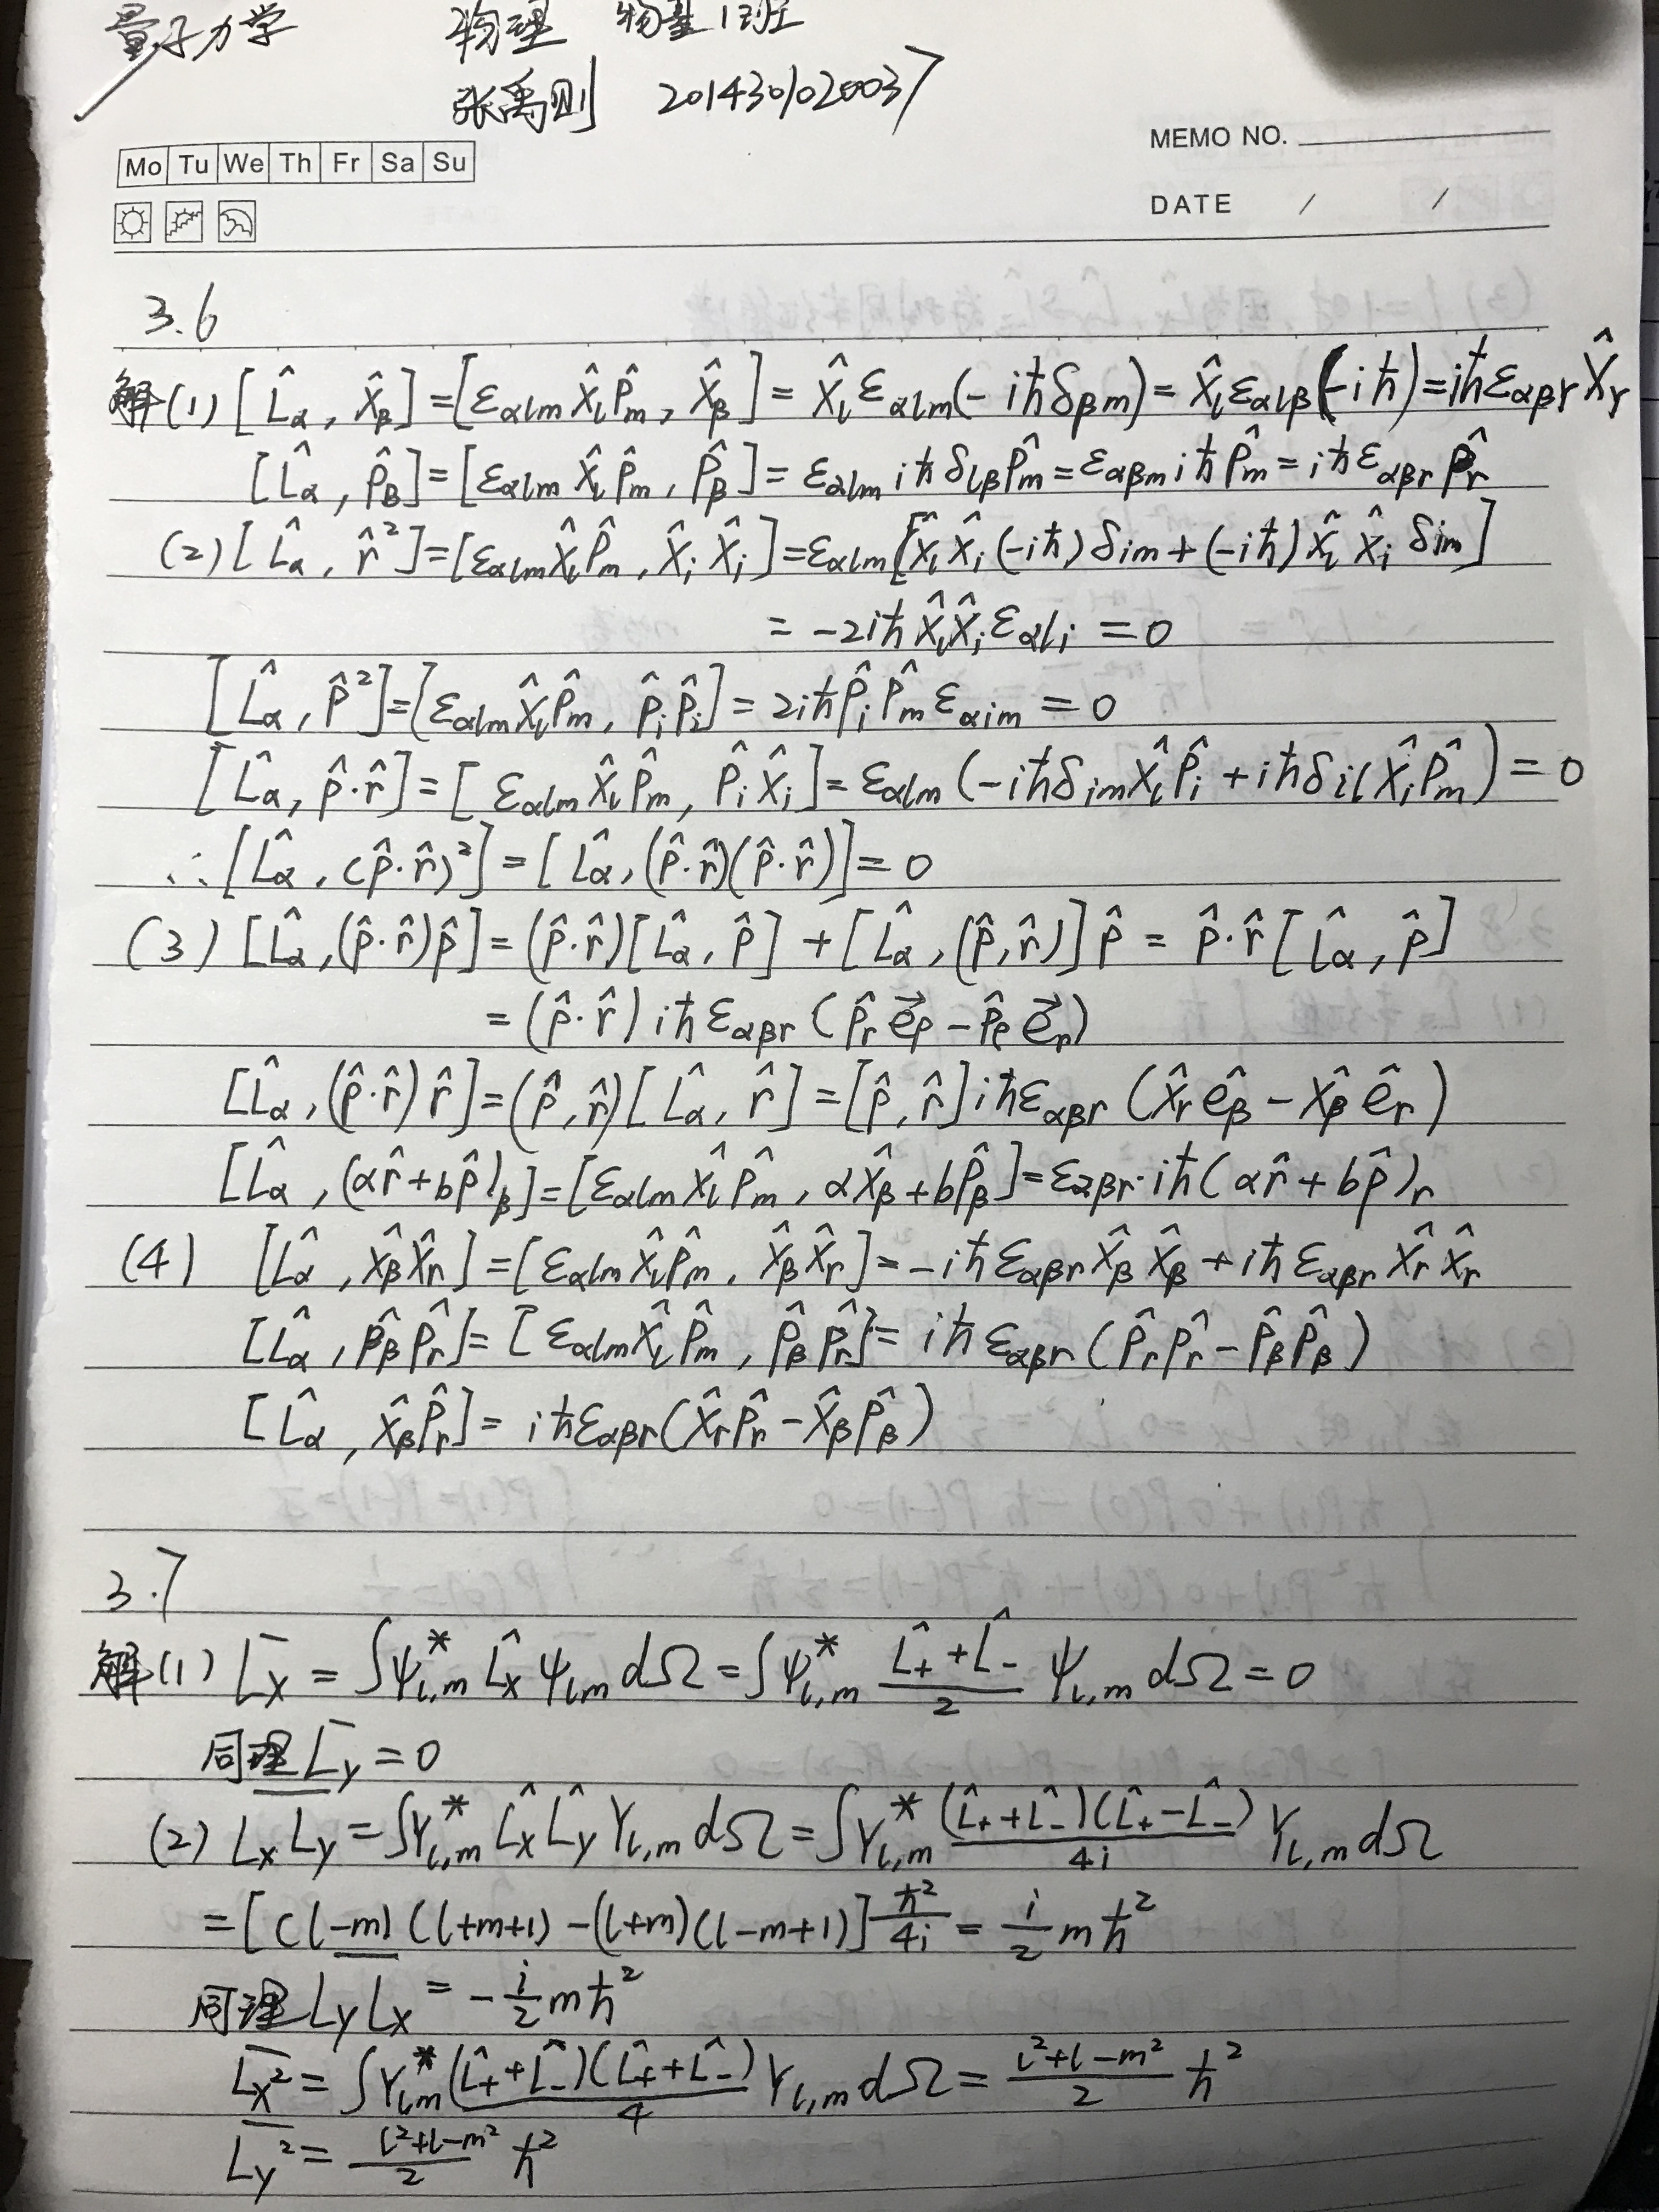 量子力学 物理 物基1班
张禹则 2014301020037
MEMO NO.
Mo Tu We Th Fr Sa Su
DATE / /
3.6
解(1) [L̂α, x̂β] = [εαlm x̂l p̂m, x̂β] = x̂l εαlm(-iħδβm) = x̂l εαlβ(-iħ) = iħεαβγ x̂γ
[L̂α, p̂β] = [εαlm x̂l p̂m, p̂β] = εαlm iħ δlβ p̂m = εαβm iħ p̂m = iħ εαβr p̂r
(2) [L̂α, r̂²] = [εαlm x̂l p̂m, x̂i x̂i] = εαlm[x̂l x̂i (-iħ) δim + (-iħ) x̂l x̂i δim]
= -2iħ x̂l x̂i εαli = 0
[L̂α, p̂²] = [εαlm x̂l p̂m, p̂i p̂i] = 2iħ p̂i p̂m εαim = 0
[L̂α, p̂·r̂] = [εαlm x̂l p̂m, p̂i x̂i] = εαlm (-iħδim x̂l p̂i + iħδil x̂i p̂m) = 0
∴ [L̂α, (p̂·r̂)²] = [L̂α, (p̂·r̂)(p̂·r̂)] = 0
(3) [L̂α, (p̂·r̂)p̂] = (p̂·r̂)[L̂α, p̂] + [L̂α, (p̂,r̂)] p̂ = p̂·r̂ [L̂α, p̂]
= (p̂·r̂) iħ εαβr (p̂r e⃗β - p̂β e⃗r)
[L̂α, (p̂·r̂) r̂] = (p̂,r̂)[L̂α, r̂] = [p̂,r̂] iħεαβr (x̂r êβ - x̂β êr)
[L̂α, (αr̂+bp̂)β] = [εαlm x̂l p̂m, αx̂β + bp̂β] = εαβr·iħ(αr̂ + bp̂)r
(4) [L̂α, x̂β x̂r] = [εαlm x̂l p̂m, x̂β x̂r] = -iħ εαβr x̂β x̂β + iħ εαβr x̂r x̂r
[L̂α, p̂β p̂r] = [εαlm x̂l p̂m, p̂β p̂r] = iħ εαβr (p̂r p̂r - p̂β p̂β)
[L̂α, x̂β p̂r] = iħεαβr(x̂r p̂r - x̂β p̂β)
3.7
解(1) L̄x = ∫ψ*l,m L̂x ψlm dΩ = ∫ψ*l,m (L̂+ + L̂-)/2 ψl,m dΩ = 0
同理 L̄y = 0
(2) LxLy = ∫Y*l,m L̂x L̂y Yl,m dΩ = ∫Y*l,m (L̂+ + L̂-)(L̂+ - L̂-)/4i Yl,m dΩ
= [(l-m)(l+m+1) - (l+m)(l-m+1)] ħ²/4i = i/2 mħ²
同理 LyLx = -i/2 mħ²
L̄x² = ∫Y*lm (L̂+ + L̂-)(L̂+ + L̂-)/4 Yl,m dΩ = (l²+l-m²)/2 ħ²
L̄y² = (l²+l-m²)/2 ħ²